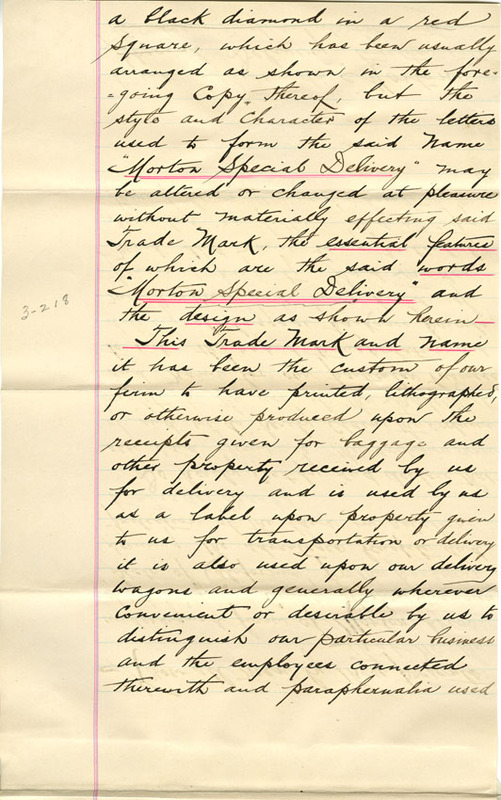 a black diamond in a red
Square, which has been usually
arranged as shown in the fore-
=going Copy thereof, but the
style and "Character of the letters
used to form the said Name
"Morton Special Delivery" may
be altered or changed at pleasure
without materially effecting said
Trade Mark, the essential features
of which are the said words
"Morton Special Delivery" and
the design as shown herein
This Trade Mark and name
it has been the custom of our
firm to have printed, lithographed,
or otherwise produced upon the
receipts given for baggage and
other property received by us
for delivery and is used by us
as a label upon property given
to us for transportation or delivery
it is also used upon our delivery
wagons and generally wherever
convenient or desirable by us to
distinguish our particular business
and the employees connected
therewith and paraphernalia used
3-218